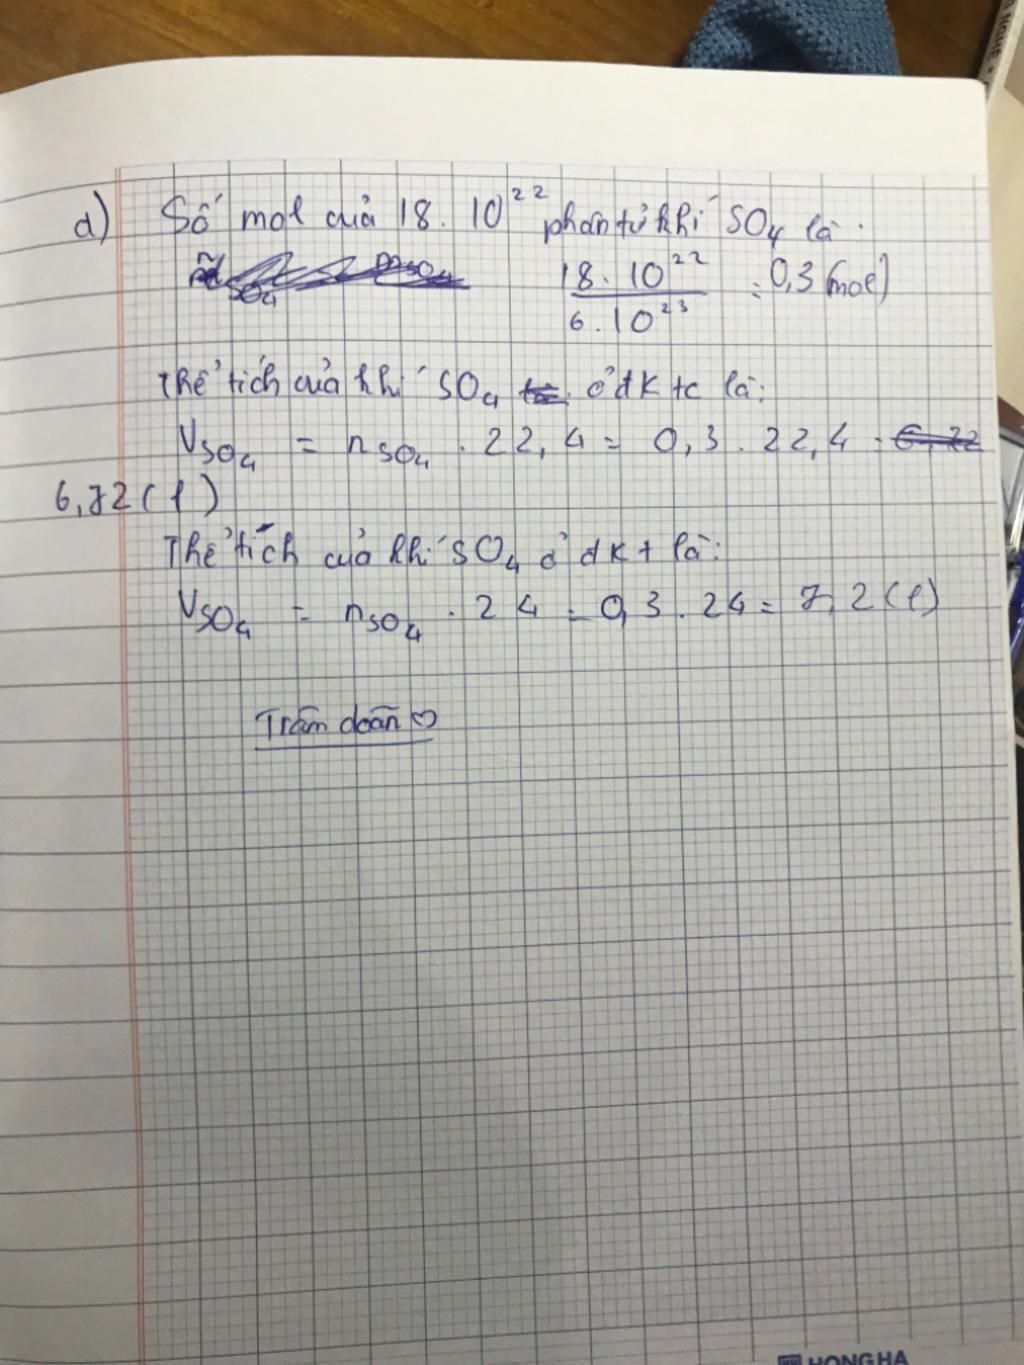 d) Số mol của 18. 10²² phân tử khí SO₄ là.
18. 10²² / 6. 10²³ = 0,3 (mol)
Thể tích của khí SO₄ ở đktc là:
V_SO₄ = n_SO₄ . 22,4 = 0,3. 22,4 =
6,72 (l)
Thể tích của khí SO₄ ở đkt là:
V_SO₄ = n_SO₄ . 24 = 0,3. 24 = 7,2 (l)
Trâm doãn♡
HONG HA